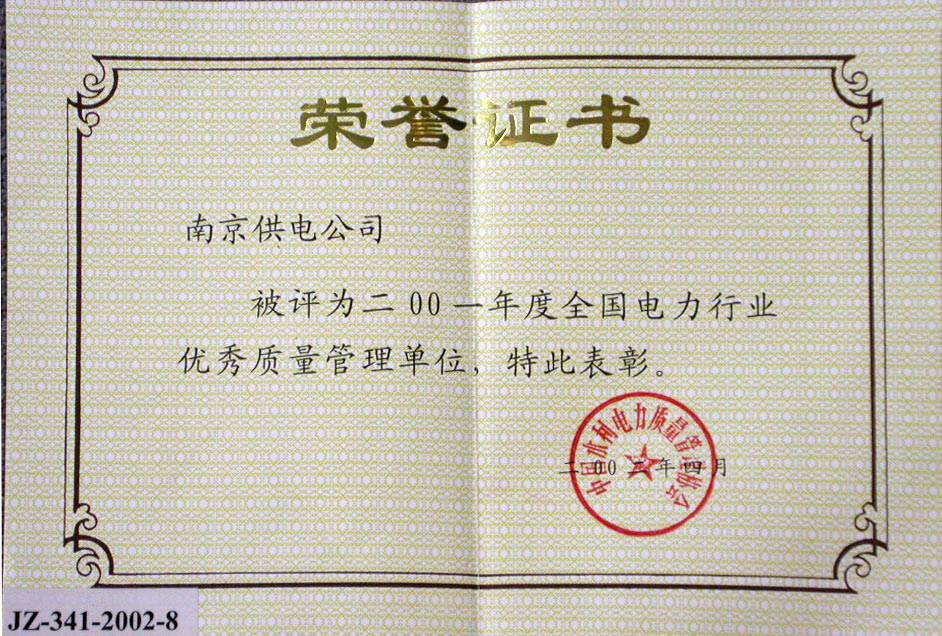 荣誉证书
南京供电公司
被评为二00一年度全国电力行业
优秀质量管理单位，特此表彰。
中国水利电力质量管理协会
二00二年四月
JZ-341-2002-8